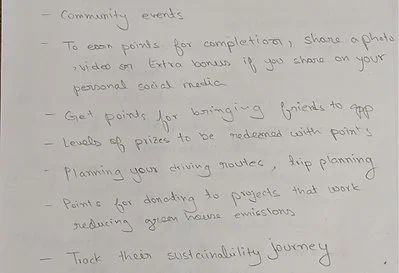 - Community events
- To earn points for completion, share a photo
, video or Extra bonus if you share on your
personal social media
- Get points for bringing friends to app
- Levels of prizes to be redeemed with points
- Planning your driving routes, trip planning
- Points for donating to projects that work
reducing green house emissions
- Track their sustainability journey